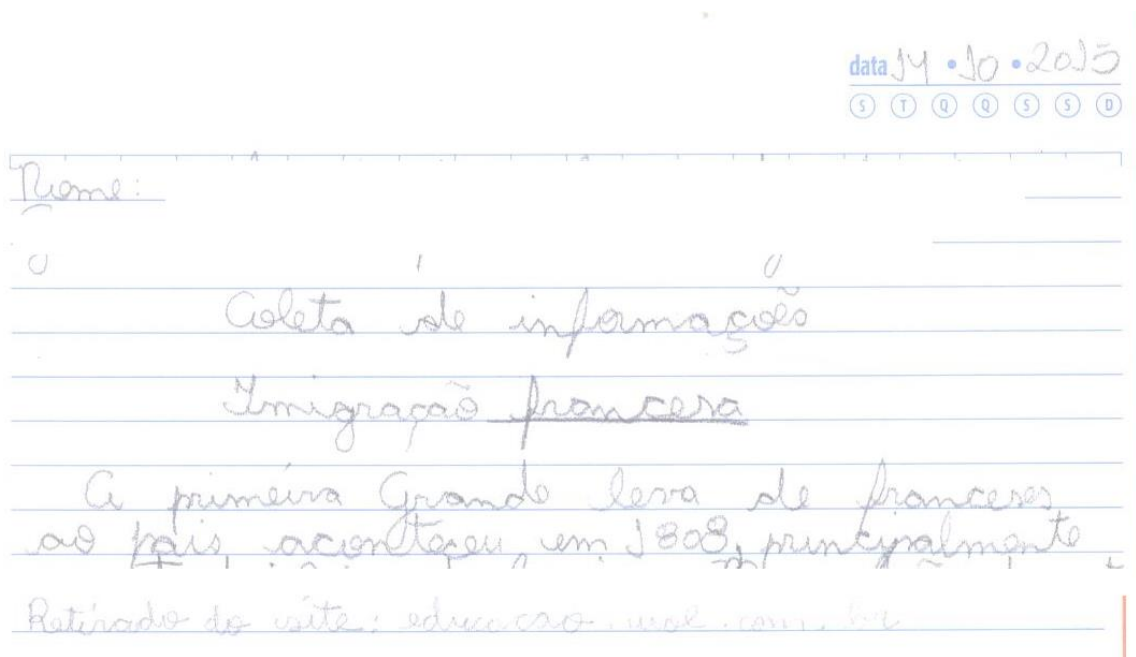 data 14 • 10 • 2015
S T Q Q S S D
Nome:
Coleta de informações
Imigração francesa
A primeira Grande leva de franceses
ao país aconteceu em 1808, principalmente
Retirado do site: educacao.uol.com.br